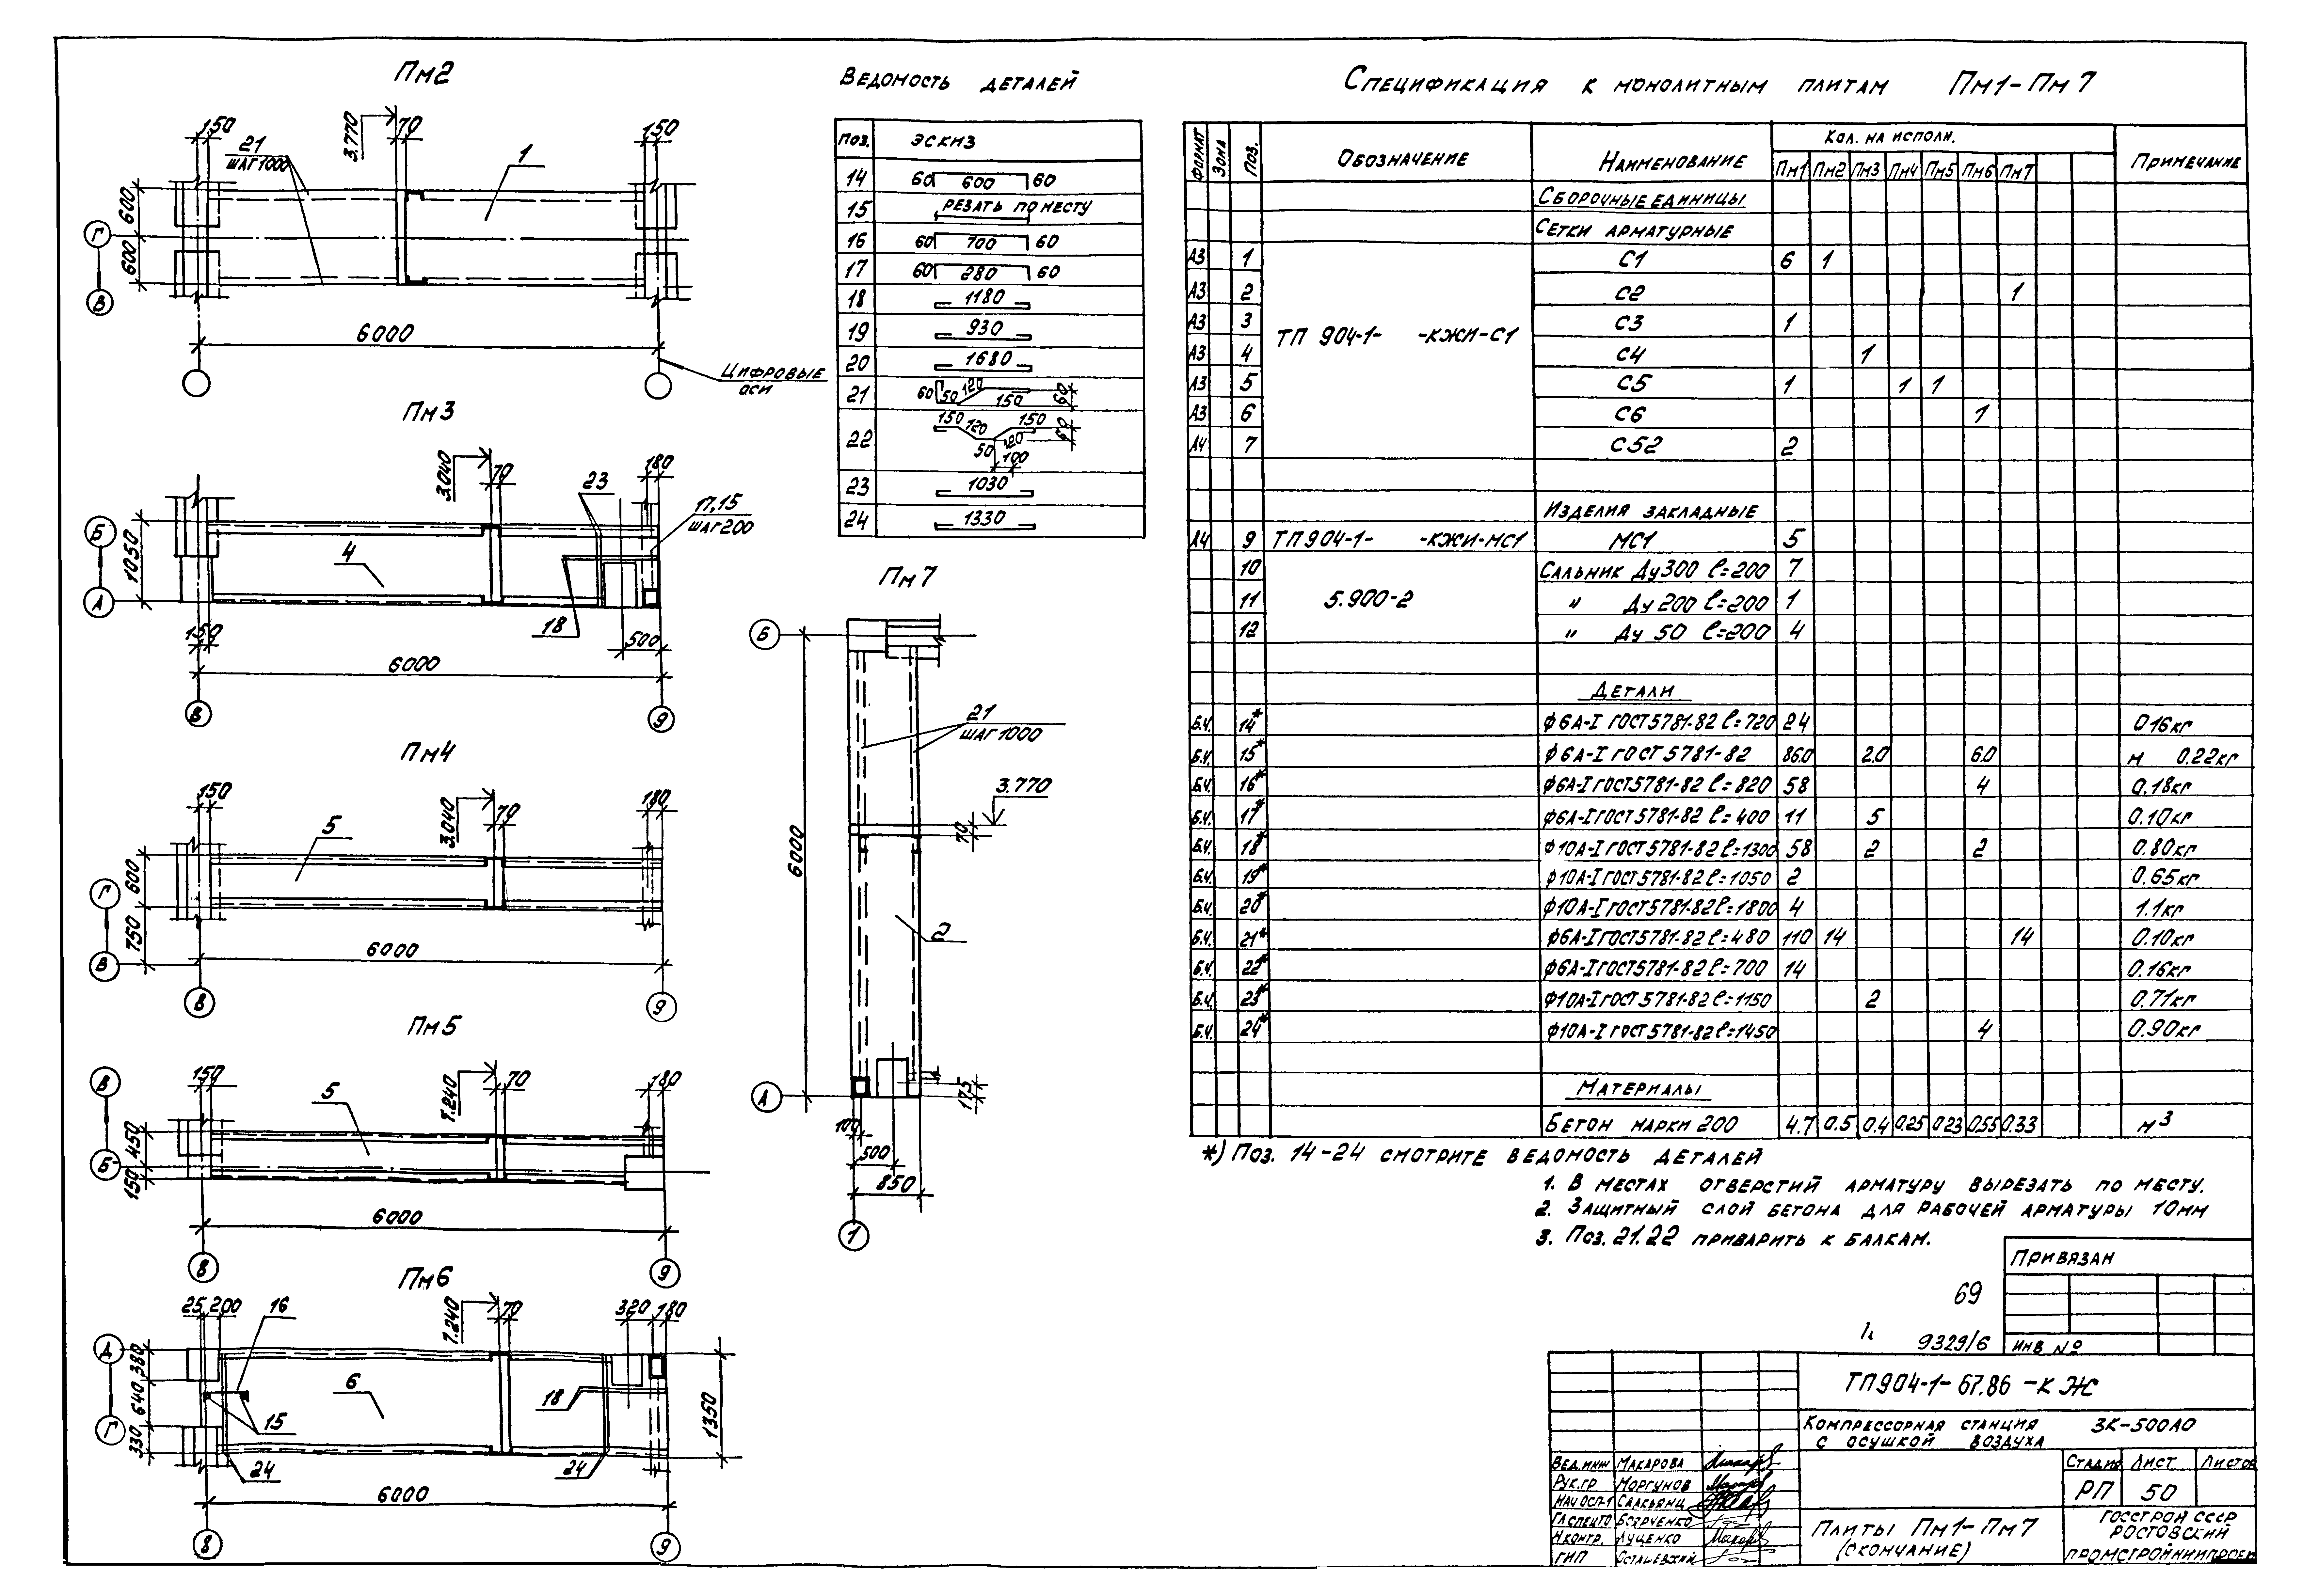 Пм2
150
3.770
70
150
21
ШАГ 1000
1
600
600
Г
В
6000
Цифровые
оси
Пм3
3.040
70
23
180
17,15
ШАГ 200
Б
1050
А
4
18
150
500
6000
8
9
Пм4
150
3.040
70
180
5
Г
600
750
В
6000
8
9
Пм5
В
150
7.240
70
180
5
450
Б
150
6000
8
9
Пм6
25 200
16
7.240
70
320
180
Д
380
640
Г
330
6
18
15
1350
24
24
6000
8
9
Ведомость деталей
Поз. Эскиз
14 60 600 60
15 Резать по месту
16 60 700 60
17 60 280 60
18 1180
19 930
20 1680
21 60 50 120 150 60
22 150 120 150 60 50 120 100
23 1030
24 1330
Пм7
Б
21
ШАГ 1000
3.770
70
6000
2
А
175
100
500
850
1
Спецификация к монолитным плитам Пм1-Пм7
Формат Зона Поз. Обозначение Наименование Кол. на исполн. Примечание
Пм1 Пм2 Пм3 Пм4 Пм5 Пм6 Пм7
Сборочные единицы
Сетки арматурные
А3 1 С1 6 1
А3 2 С2 1
А3 3 С3 1
ТП 904-1- -КЖИ-С1
А3 4 С4 1
А3 5 С5 1 1 1
А3 6 С6 1
А4 7 С52 2
Изделия закладные
А4 9 ТП904-1- -КЖИ-МС1 МС1 5
10 Сальник Ду300 ℓ=200 7
11 5.900-2 " Ду 200 ℓ=200 1
12 " Ду 50 ℓ=200 4
Детали
Б.Ч. 14* ф6А-I ГОСТ 5781-82 ℓ=720 24 0.16кг
Б.Ч. 15* ф6А-I ГОСТ 5781-82 86.0 2.0 6.0 м 0.22кг
Б.Ч. 16* ф6А-I ГОСТ 5781-82 ℓ=820 58 4 0.18кг
Б.Ч. 17* ф6А-I ГОСТ 5781-82 ℓ=400 11 5 0.10кг
Б.Ч. 18* ф10А-I ГОСТ 5781-82 ℓ=1300 58 2 2 0.80кг
Б.Ч. 19* ф10А-I ГОСТ 5781-82 ℓ=1050 2 0.65кг
Б.Ч. 20* ф10А-I ГОСТ 5781-82 ℓ=1800 4 1.1кг
Б.Ч. 21* ф6А-I ГОСТ 5781-82 ℓ=480 110 14 14 0.10кг
Б.Ч. 22* ф6А-I ГОСТ 5781-82 ℓ=700 14 0.16кг
Б.Ч. 23* ф10А-I ГОСТ 5781-82 ℓ=1150 2 0.71кг
Б.Ч. 24* ф10А-I ГОСТ 5781-82 ℓ=1450 4 0.90кг
Материалы
Бетон марки 200 4.7 0.5 0.4 0.25 0.23 0.55 0.33 м³
*) Поз. 14-24 смотрите ведомость деталей
1. В местах отверстий арматуру вырезать по месту.
2. Защитный слой бетона для рабочей арматуры 10мм
3. Поз. 21.22 приварить к балкам.
Привязан
69
9329/6
ИНВ №
ТП904-1-67.86 -КЖ
Компрессорная станция 3К-500АО
с осушкой воздуха
Вед.инж Макарова
Рук.гр Моргунов
Нач ОСП-1 Саакьянц
Гл спец ТО Боярченко
Н.контр. Луценко
ГИП Осташевский
Стадия Лист Листов
РП 50
Плиты Пм1-Пм7
(окончание)
Госстрой СССР
Ростовский
Промстройниипроект